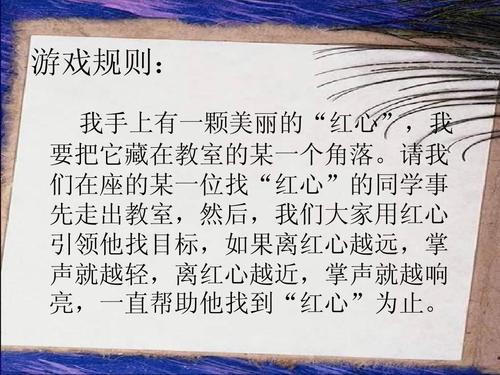 游戏规则：
我手上有一颗美丽的“红心”，我
要把它藏在教室的某一个角落。请我
们在座的某一位找“红心”的同学事
先走出教室，然后，我们大家用红心
引领他找目标，如果离红心越远，掌
声就越轻，离红心越近，掌声就越响
亮，一直帮助他找到“红心”为止。